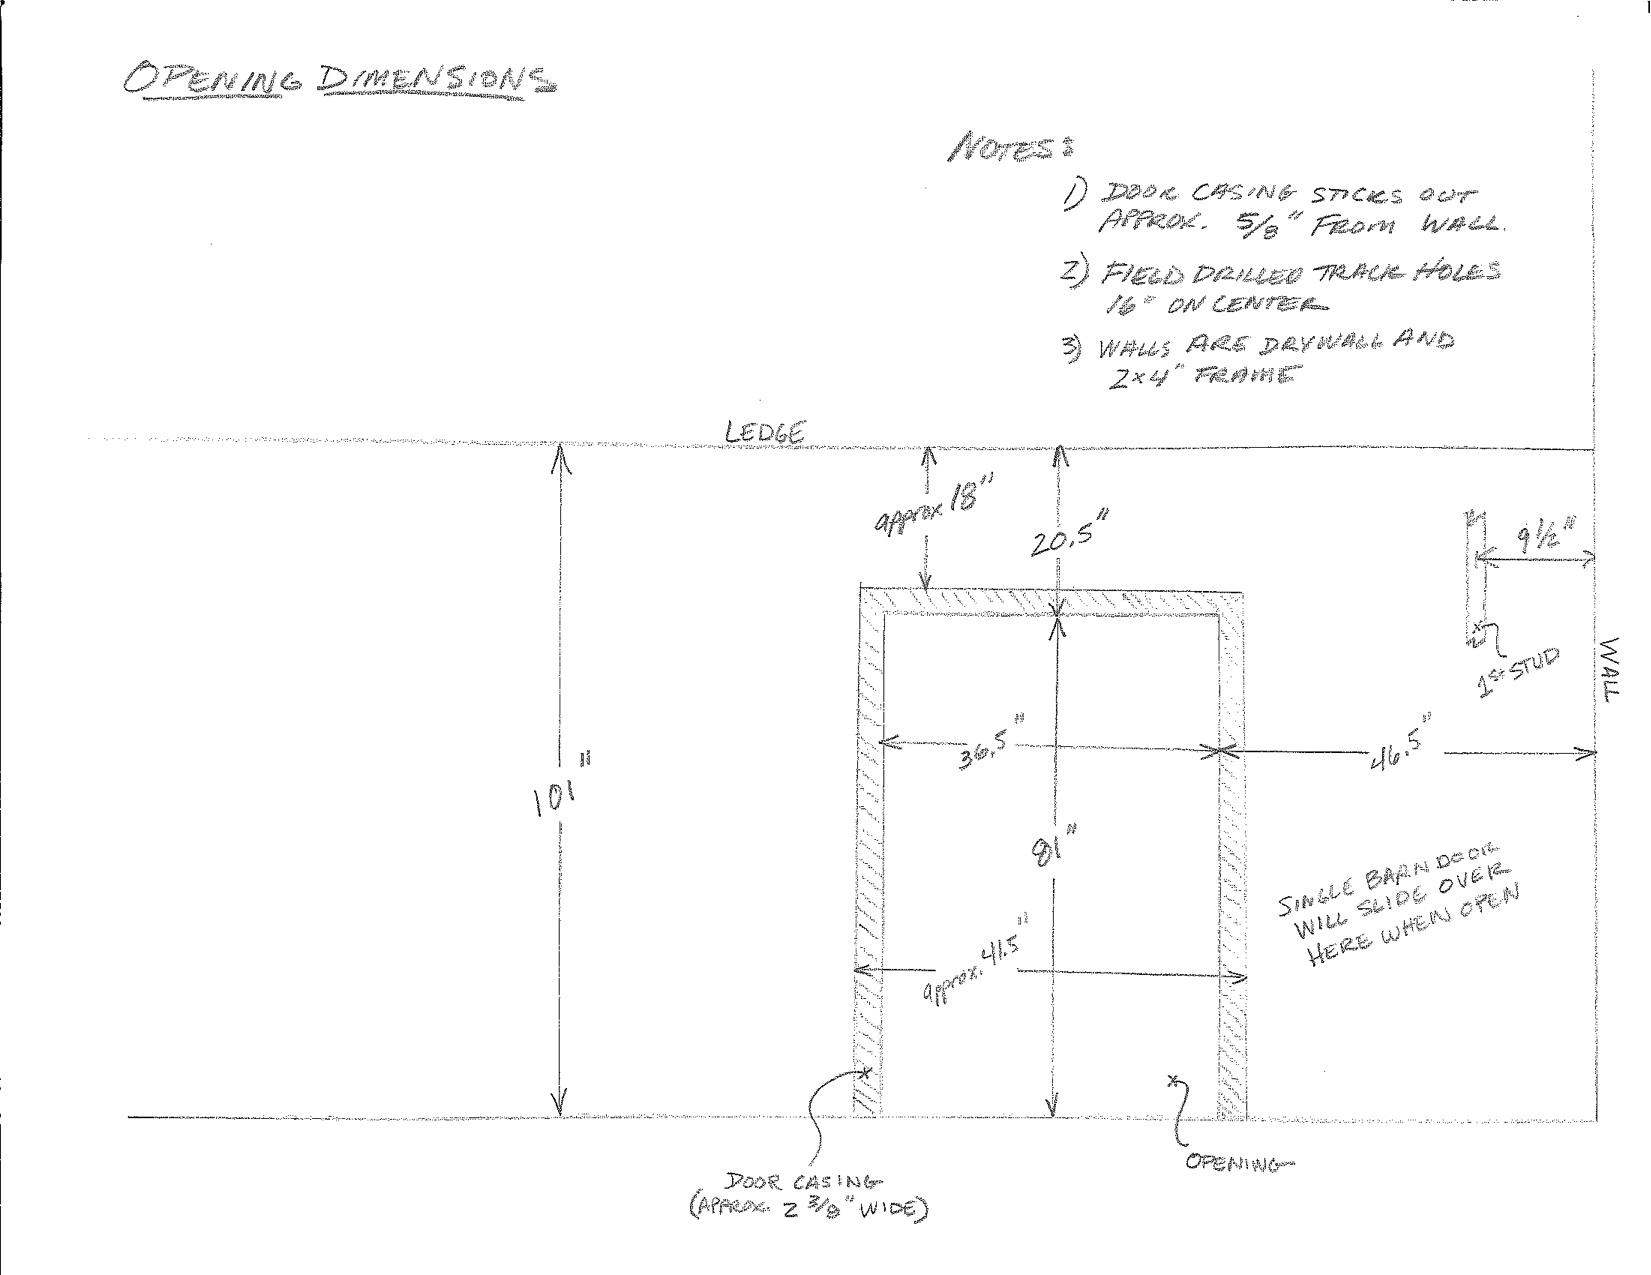 OPENING DIMENSIONS
NOTES:
1) DOOR CASING STICKS OUT
APPROX. 5/8" FROM WALL.
2) FIELD DRILLED TRACK HOLES
16" ON CENTER
3) WALLS ARE DRYWALL AND
2x4" FRAME
LEDGE
approx 18"
20.5"
9 1/2"
1st STUD
WALL
36.5"
46.5"
101"
81"
SINGLE BARN DOOR
WILL SLIDE OVER
HERE WHEN OPEN
approx. 41.5"
OPENING
DOOR CASING
(APPROX. 2 3/8" WIDE)